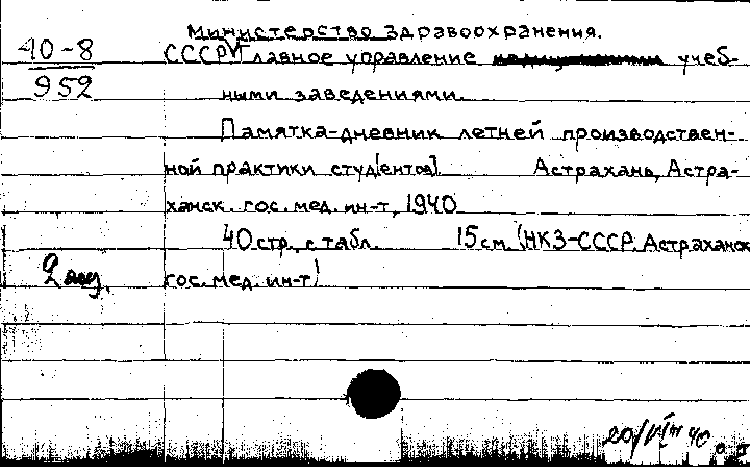 Министерство здравоохранения.
40-8 СССР. Главное управление учеб-
952 ными заведениями.
Памятка-дневник летней производствен-
ной практики студ[ентов]. Астрахань, Астра-
ханск. гос. мед. ин-т, 1940
40 стр. с табл. 15 см. (НКЗ-СССР. Астраханск
2 экз. гос. мед. ин-т)